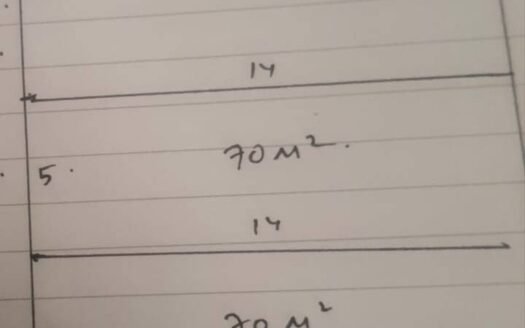 14
70 M².
5.
14
70 M²